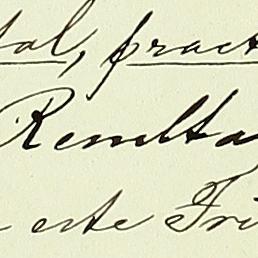 tal, pract
Resulta
este Tri